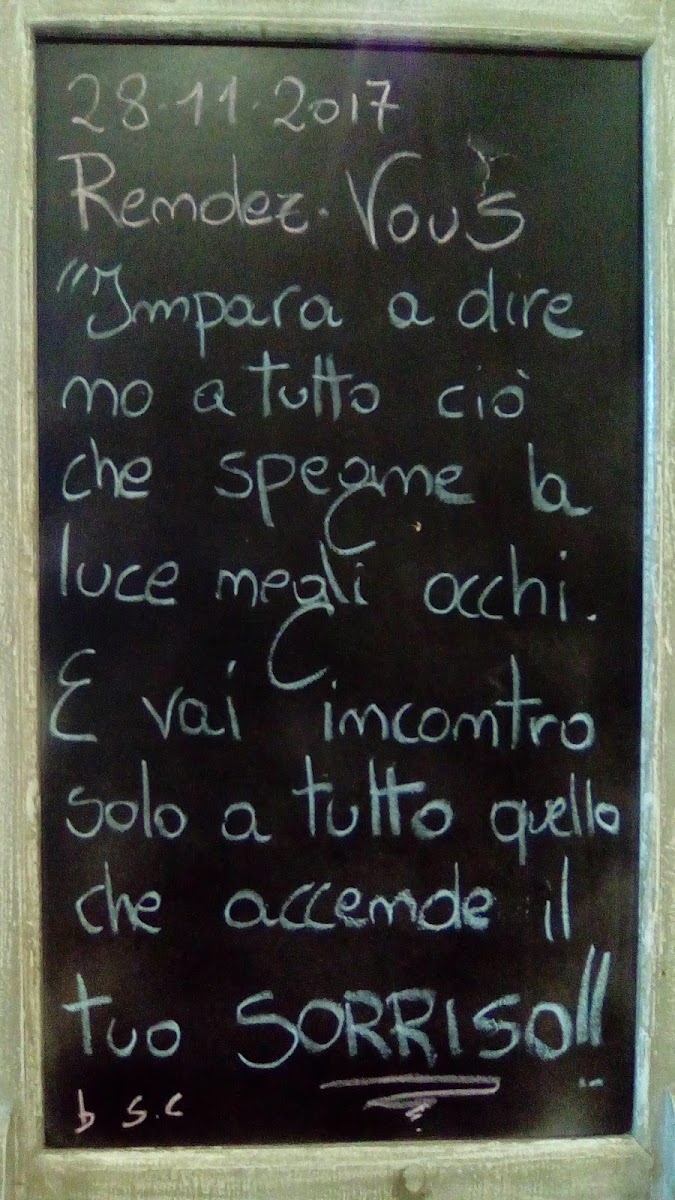 28.11.2017
Rendez-Vous
"Impara a dire
no a tutto ciò
che spegne la
luce negli occhi.
E vai incontro
solo a tutto quello
che accende il
tuo SORRISO!!
b s.c